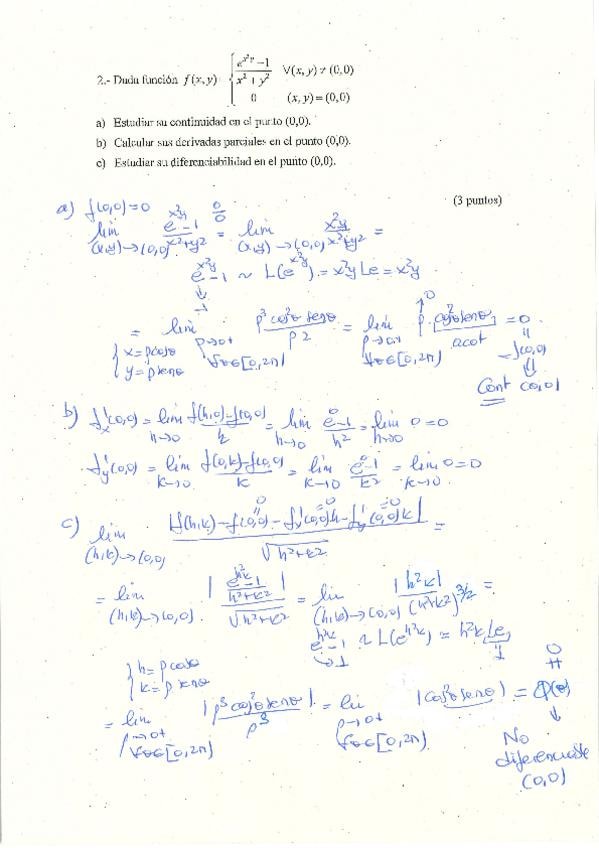 2.- Dada función f(x,y) { (e^{x²y} −1)/(x² + y²) ∀(x,y) ≠ (0,0)
0 (x,y) = (0,0)
a) Estudiar su continuidad en el punto (0,0).
b) Calcular sus derivadas parciales en el punto (0,0).
c) Estudiar su diferenciabilidad en el punto (0,0).
(3 puntos)
a) f(0,0)=0 0/0
lim (x,y)→(0,0) (e^{x²y}−1)/(x²+y²) = lim (x,y)→(0,0) x²y/(x²+y²) =
e^{x²y}−1 ~ L(e^{x²y}) = x²y Le = x²y
↓ 1
= lim ρ→0+ ∀θ∈[0,2π) ρ³cos²θ senθ/ρ² = lim ρ→0+ ∀θ∈[0,2π) ρ cos²θ senθ = 0 = f(0,0)
{ x=ρcosθ
y=ρsenθ
acot
Cont (0,0)
b) f'x(0,0) = lim h→0 (f(h,0)−f(0,0))/h = lim h→0 (e⁰−1)/h² = lim h→0 0=0
f'y(0,0) = lim k→0 (f(0,k)−f(0,0))/k = lim k→0 (e⁰−1)/k² = lim k→0 0=0
c) lim (h,k)→(0,0) |f(h,k)−f(0,0)−f'x(0,0)h−f'y(0,0)k|/√(h²+k²) =
= lim (h,k)→(0,0) |(e^{h²k}−1)/(h²+k²)|/√(h²+k²) = lim (h,k)→(0,0) |h²k|/(h²+k²)^{3/2} =
e^{h²k}−1 ~ L(e^{h²k}) = h²k Le
↓ 1
{ h=ρcosθ
k=ρsenθ
= lim ρ→0+ ∀θ∈[0,2π) |ρ³cos²θ senθ|/ρ³ = lim ρ→0+ ∀θ∈[0,2π) |cos²θ senθ| = φ(θ) ≠ 0
No
diferenciable
(0,0)